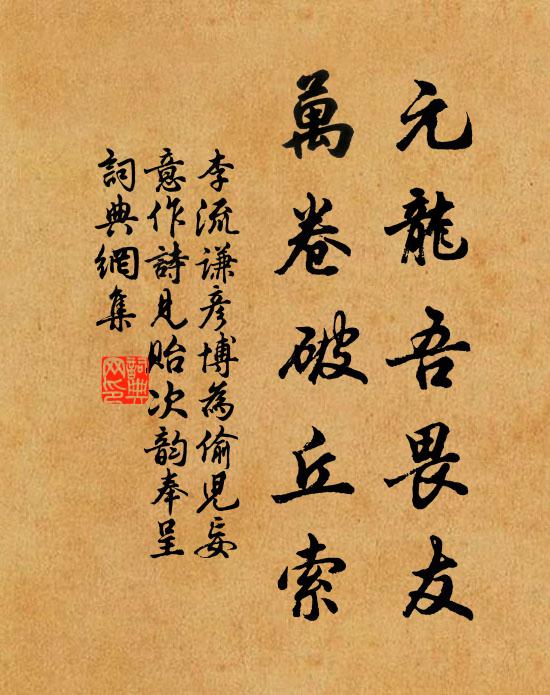 元龍吾畏友
萬卷破丘索
李流謙彥博為偷兒妄
意作詩見貽次韵奉呈
詞典網集
詞典
网印